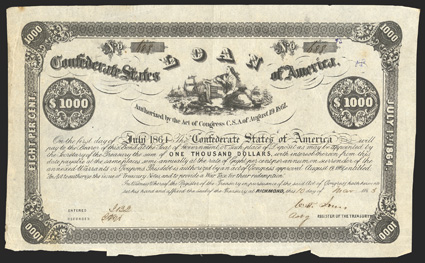 1000
1000
No
No
LOAN
Confederate States
of America.
$ 1000
$ 1000
Authorized by the Act of Congress C.S.A. of August 19, 1861.
EIGHT PER CENT.
JULY 1864
On the first day of July 1864 The Confederate States of America will
pay to the Bearer of this Bond at the Seat of Government
by the Secretary of the Treasury the sum of ONE THOUSAND DOLLARS, with interest thereon from this
date payable at the same place semi annually at the rate of Eight per cent per annum on surrender of the
annexed Warrants or Coupons. This debt is authorized by an act of Congress approved August 19 1861 entitled
An Act to authorize the issue of Treasury Notes and to provide a War Tax for their redemption.
In witness whereof the Register of the Treasury in pursuance of the said Act of Congress hath hereunto
set his hand and affixed the seal of the Treasury at RICHMOND, this day of
ENTERED
RECORDED
REGISTER OF THE TREASURY
1000
1000